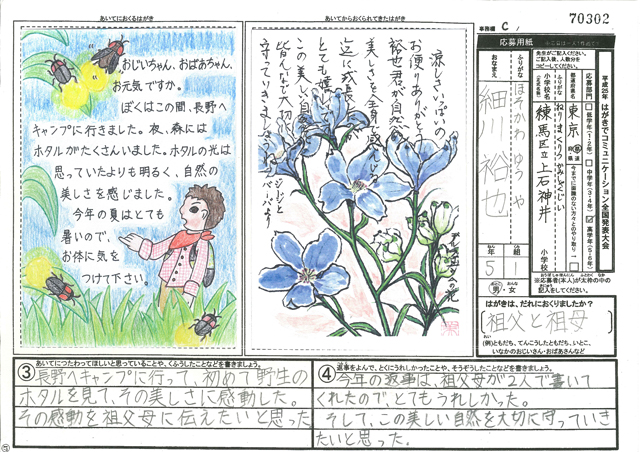 あいてにおくるはがき
おじいちゃん、おばあちゃん、
お元気ですか。
ぼくはこの間、長野へ
キャンプに行きました。夜、森には
ホタルがたくさんいました。ホタルの光は
思っていたよりも明るく、自然の
美しさを感じました。
今年の夏はとても
暑いので、
お体に気を
つけて下さい。
あいてからおくられてきたはがき
涼しさいっぱいの
お便りありがとう
裕也君が自然の
美しさを全身で感じ
とても
この美しい自然
皆んなで大切に
守っていきましょう
ジィジと
バァバより
の花
事務欄 C
70302
応募用紙
平成25年 はがきでコミュニケーション全国発表大会
応募部門
低学年(1・2年)
中学年(3・4年)
高学年(5・6年)
都道府県名
東京
小学校名
ねりまくりつかみしゃくじい
練馬区立上石神井
小学校
ふりがな
ほそかわ ゆうや
おなまえ
細川 裕也
5年
1組
男・女
※応募者(本人)が太枠の中の
記入をしてください。
はがきは、だれにおくりましたか?
祖父と祖母
(例)ともだち、てんこうしたともだち、いとこ、
いなかのおじいさん・おばあさんなど
③ あいてにつたわってほしいと思っていることや、くふうしたことなどを書きましょう。
長野へキャンプに行って、初めて野生の
ホタルを見て、その美しさに感動した。
その感動を祖父母に伝えたいと思った
④ 返事をよんで、とくにうれしかったことや、そうぞうしたことなどを書きましょう。
今年の返事は、祖父母が2人で書いて
くれたので、とてもうれしかった。
そして、この美しい自然を大切に守っていき
たいと思った。